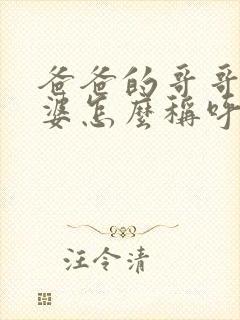 爸爸的哥哥
婆怎麼稱呼
汪令清